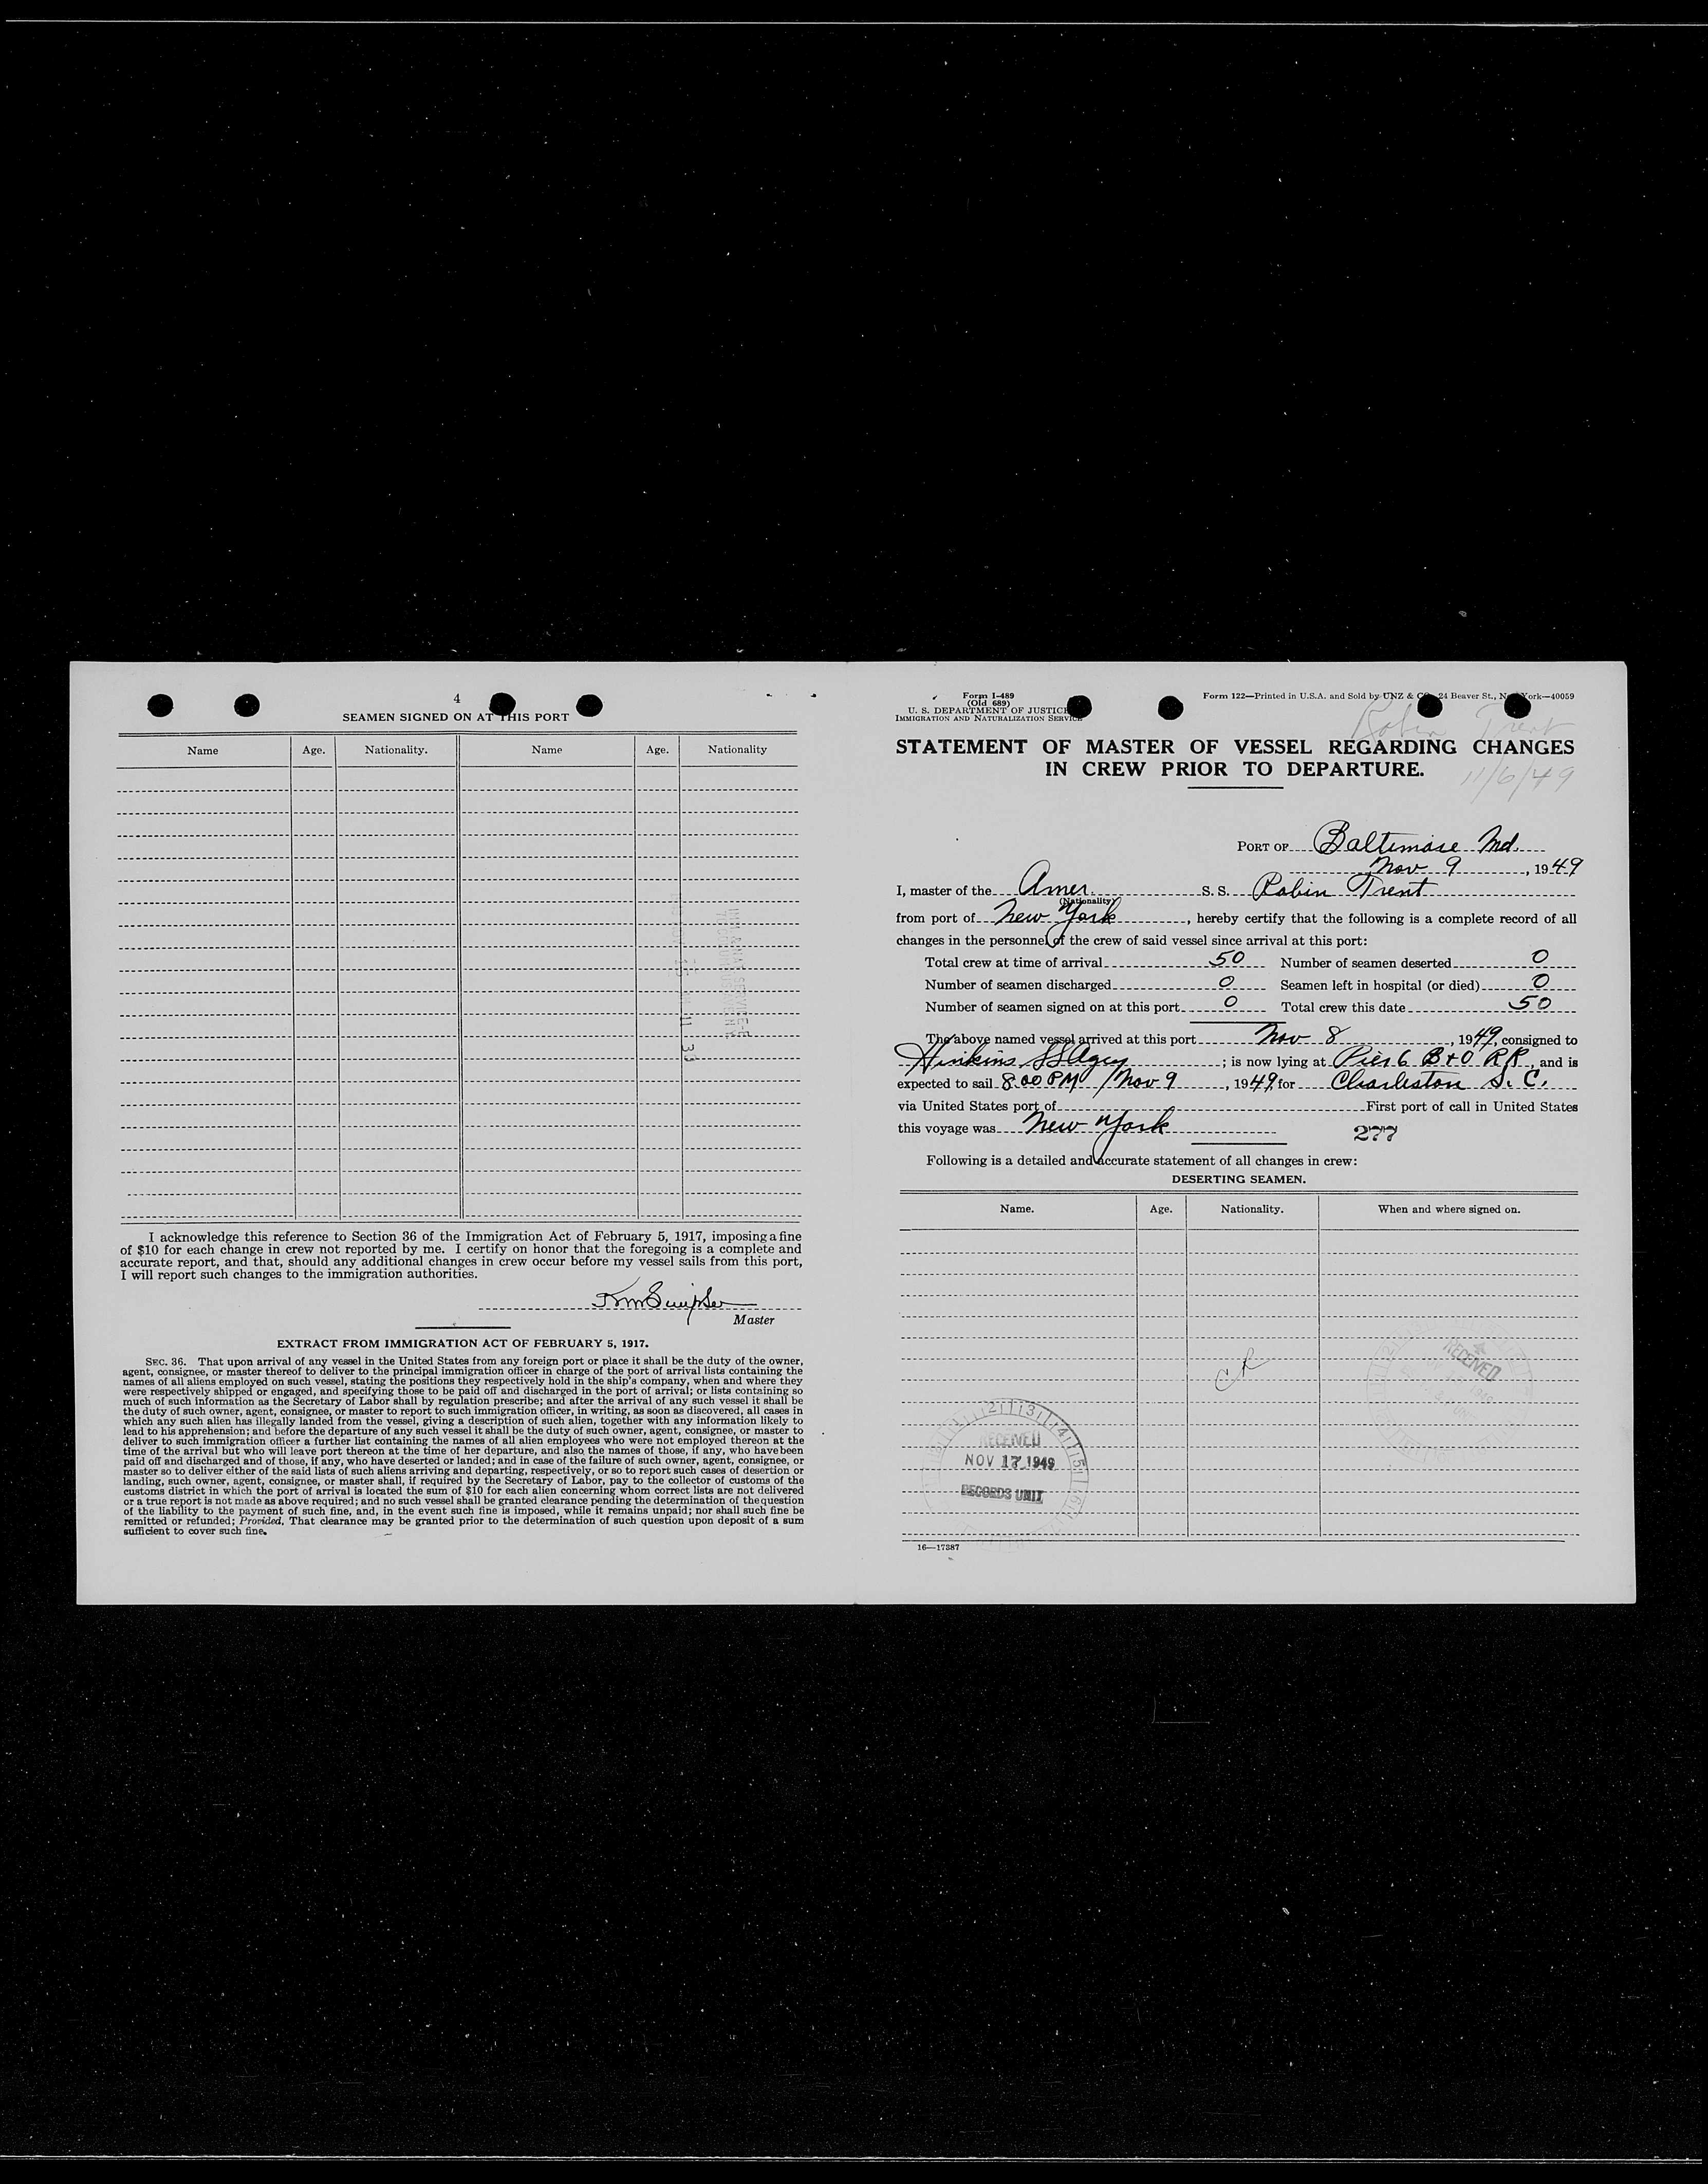 4
SEAMEN SIGNED ON AT THIS PORT
Name Age. Nationality. Name Age. Nationality
I acknowledge this reference to Section 36 of the Immigration Act of February 5, 1917, imposing a fine
of $10 for each change in crew not reported by me. I certify on honor that the foregoing is a complete and
accurate report, and that, should any additional changes in crew occur before my vessel sails from this port,
I will report such changes to the immigration authorities.
Master
EXTRACT FROM IMMIGRATION ACT OF FEBRUARY 5, 1917.
SEC. 36. That upon arrival of any vessel in the United States from any foreign port or place it shall be the duty of the owner,
agent, consignee, or master thereof to deliver to the principal immigration officer in charge of the port of arrival lists containing the
names of all aliens employed on such vessel, stating the positions they respectively hold in the ship's company, when and where they
were respectively shipped or engaged, and specifying those to be paid off and discharged in the port of arrival; or lists containing so
much of such information as the Secretary of Labor shall by regulation prescribe; and after the arrival of any such vessel it shall be
the duty of such owner, agent, consignee, or master to report to such immigration officer, in writing, as soon as discovered, all cases in
which any such alien has illegally landed from the vessel, giving a description of such alien, together with any information likely to
lead to his apprehension; and before the departure of any such vessel it shall be the duty of such owner, agent, consignee, or master to
deliver to such immigration officer a further list containing the names of all alien employees who were not employed thereon at the
time of the arrival but who will leave port thereon at the time of her departure, and also the names of those, if any, who have been
paid off and discharged and of those, if any, who have deserted or landed; and in case of the failure of such owner, agent, consignee, or
master so to deliver either of the said lists of such aliens arriving and departing, respectively, or so to report such cases of desertion or
landing, such owner, agent, consignee, or master shall, if required by the Secretary of Labor, pay to the collector of customs of the
customs district in which the port of arrival is located the sum of $10 for each alien concerning whom correct lists are not delivered
or a true report is not made as above required; and no such vessel shall be granted clearance pending the determination of the question
of the liability to the payment of such fine, and, in the event such fine is imposed, while it remains unpaid; nor shall such fine be
remitted or refunded; Provided, That clearance may be granted prior to the determination of such question upon deposit of a sum
sufficient to cover such fine.
Form I-489
(Old 689)
U. S. DEPARTMENT OF JUSTICE
IMMIGRATION AND NATURALIZATION SERVICE
Form 122—Printed in U.S.A. and Sold by UNZ & CO., 24 Beaver St., New York—40059
Robin Trent
STATEMENT OF MASTER OF VESSEL REGARDING CHANGES
IN CREW PRIOR TO DEPARTURE.
11/6/49
PORT OF Baltimore Md.
Nov 9, 1949
I, master of the Amer. S. S. Robin Trent
(Nationality)
from port of New York, hereby certify that the following is a complete record of all
changes in the personnel of the crew of said vessel since arrival at this port:
Total crew at time of arrival 50 Number of seamen deserted 0
Number of seamen discharged 0 Seamen left in hospital (or died) 0
Number of seamen signed on at this port 0 Total crew this date 50
The above named vessel arrived at this port Nov 8, 1949, consigned to
Hinkins SS Agcy; is now lying at Pier 6 B+O RR, and is
expected to sail 8.00 PM Nov 9, 1949 for Charleston S. C.
via United States port of First port of call in United States
this voyage was New York
277
Following is a detailed and accurate statement of all changes in crew:
DESERTING SEAMEN.
Name. Age. Nationality. When and where signed on.
RECEIVED
RECEIVED
NOV 17 1949
RECORDS UNIT
16—17387